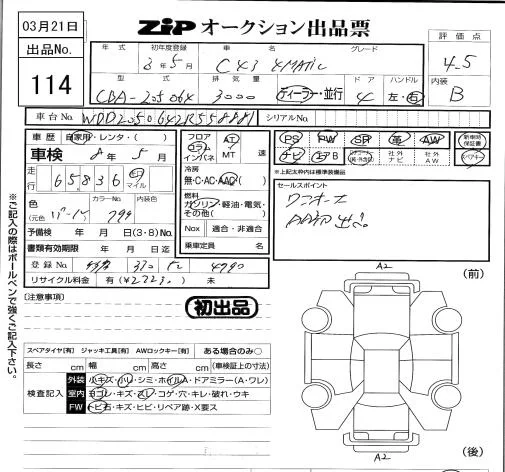 03月21日
ZiP オークション出品票
出品No.
114
評価点
4.5
内装
B
年式 初年度登録 車名 グレード
3年5月 C43 4MATIC
型式 排気量 ドア ハンドル
CBA-205064 3000 ディーラー・並行 4 左・右
車台No WDD2050642R558881 シリアルNo.
車歴 自家用・レンタ・( )
車検 8年5月
走行 65836 km マイル
色 (元色 ) カラーNo. 799 内装色
予備検 年 月 日(3・8)No.
書類有効期限 年 月 日迄
登録No. 330 4990
リサイクル料金 有(¥ ) 未
フロア コラム インパネ AT MT 速
冷房 無・C・AC・AAC
燃料 ガソリン・軽油・電気・その他( )
Nox 適合・非適合
乗車定員 名
PS PW SR 革 AW
ナビ エアB 社外ナビ 社外AW
新車時保証書
*上記太枠内は標準装備品
セールスポイント
ワンオーナー
※ご記入の際はボールペンで強くご記入下さい。
[注意事項]
初出品
スペアタイヤ[有] ジャッキ工具[有] AWロックキー[有] ある場合のみ○
長さ cm 幅 cm 高さ cm (車検証上の寸法)
検査記入
外装 小キズ・小凹・シミ・ホイルA・ドアミラー(A・ワレ)
室内 ヨゴレ・キズ・スレ・コゲ・穴・キレ・破れ・ウキ
FW トビ石・キズ・ヒビ・リペア跡・X要ス
A2
(前)
A2
(後)